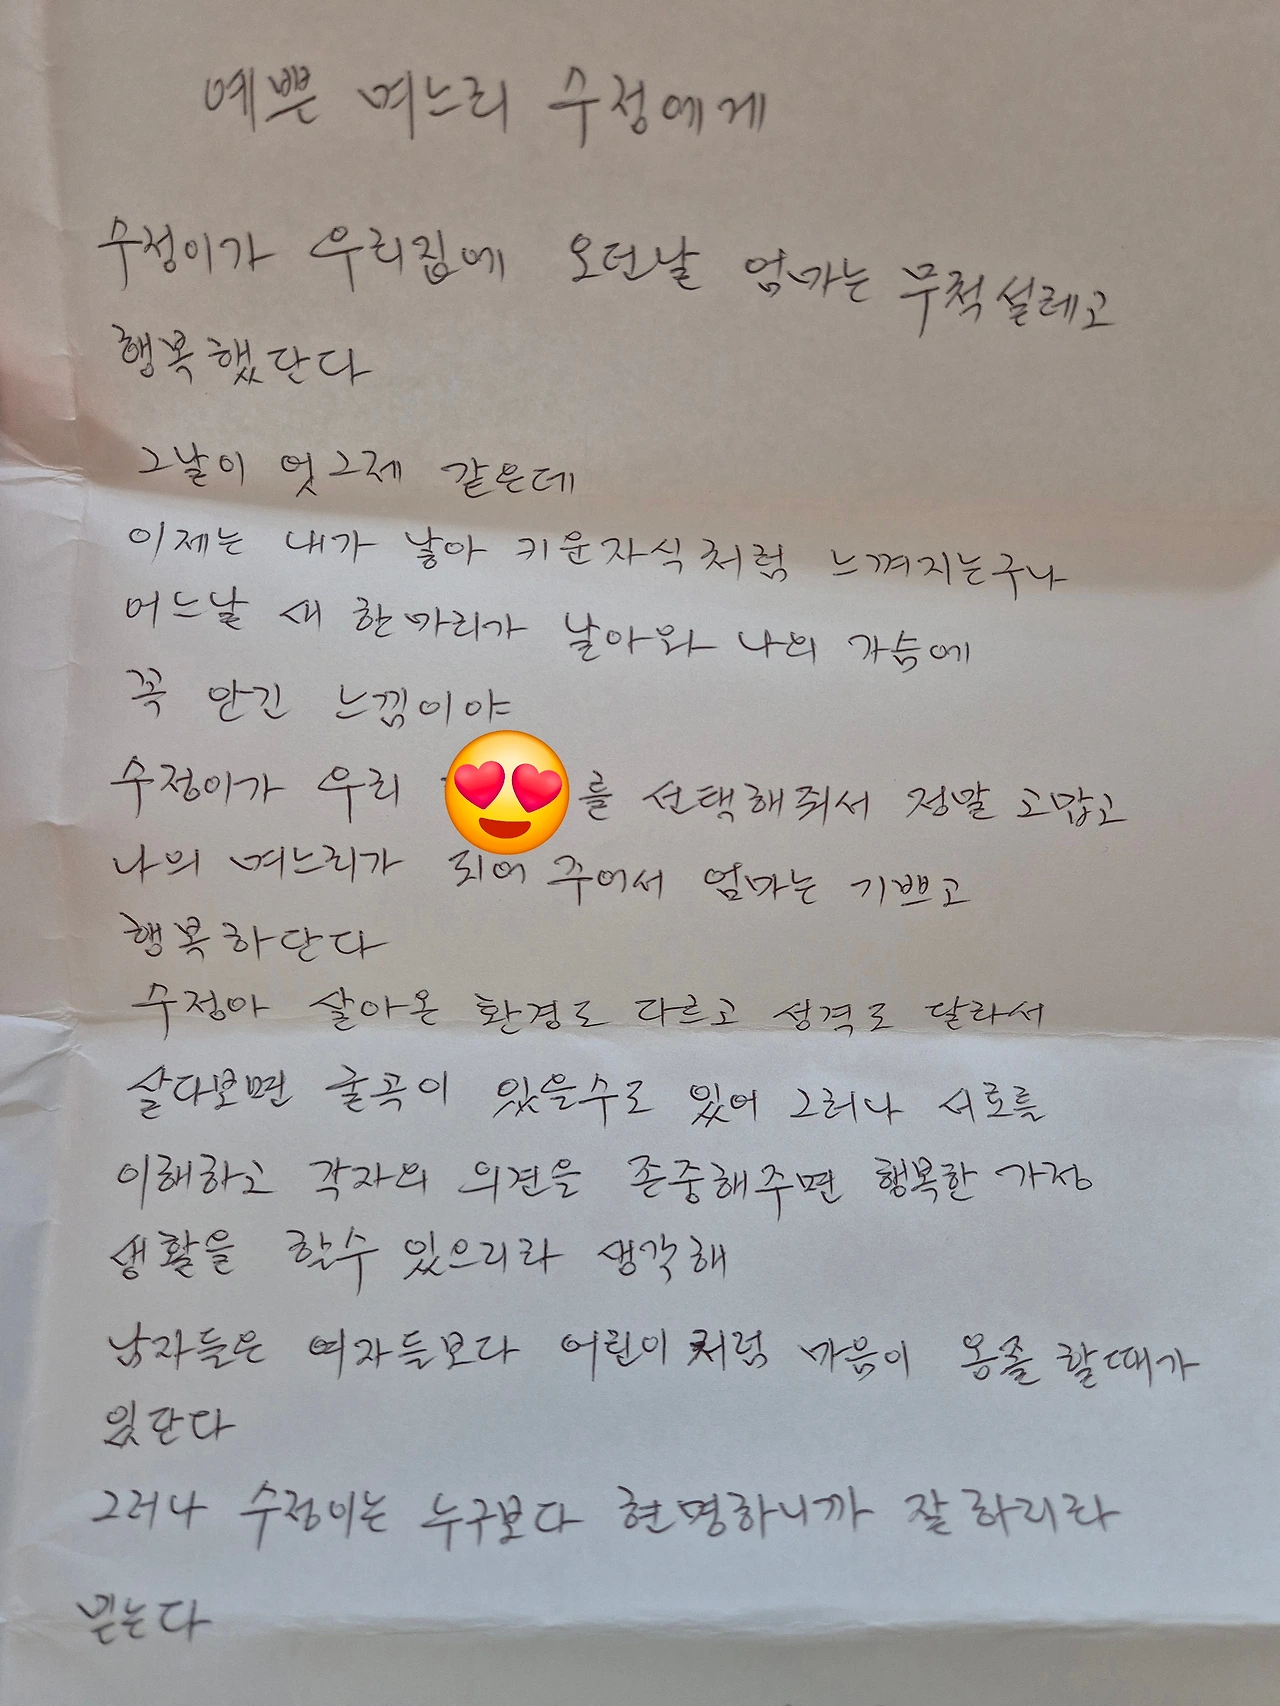 예쁜 며느리 수정에게
수정이가 우리집에 오던날 엄마는 무척설레고
행복했단다
그날이 엇그제 같은데
이제는 내가 낳아 키운자식처럼 느껴지는구나
어느날 새 한마리가 날아와 나의 가슴에
꼭 안긴 느낌이야
수정이가 우리 를 선택해줘서 정말 고맙고
나의 며느리가 되어 주어서 엄마는 기쁘고
행복하단다
수정아 살아온 환경도 다르고 성격도 달라서
살다보면 굴곡이 있을수도 있어 그러나 서로를
이해하고 각자의 의견을 존중해주면 행복한 가정
생활을 할수 있으리라 생각해
남자들은 여자들보다 어린이처럼 마음이 옹졸할때가
있단다
그러나 수정이는 누구보다 현명하니까 잘하리라
믿는다